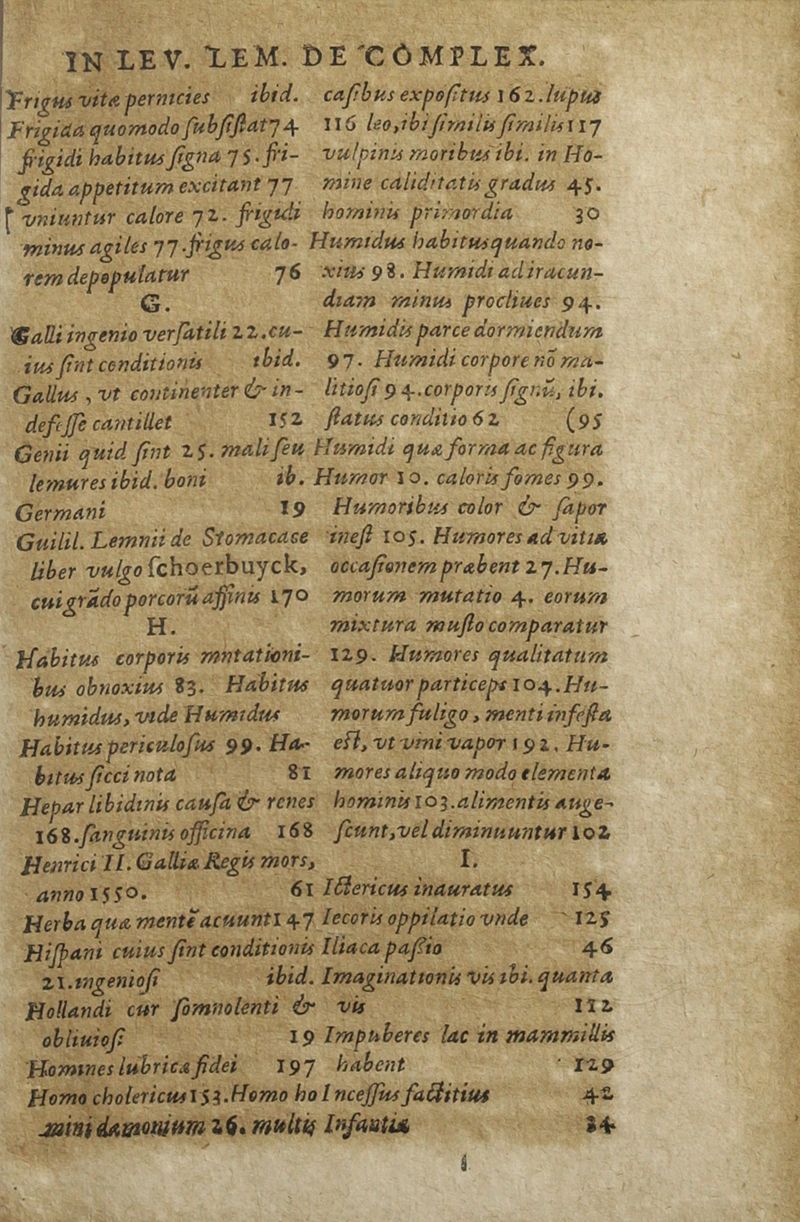 IN LEV. LEM. DE COMPLEX.
Frigus vitæ pernicies ibid.
Frigida quomodo subsistat 74
frigidi habitus signa 75. fri-
gida appetitum excitant 77
vniuntur calore 72. frigidi
minus agiles 77. frigus calo-
rem depopulatur 76
G.
Galli ingenio versatili 22. cu-
ius sint conditionis ibid.
Gallus, vt continenter & in-
defesse cantillet 152
Genii quid sint 25. mali seu
lemures ibid. boni ib.
Germani 19
Guilil. Lemnii de Stomacace
liber vulgo schoerbuyck,
cui grãdo porcorũ affinis 170
H.
Habitus corporis mntationi-
bus obnoxius 83. Habitus
humidus, vide Humidus
Habitus periculosus 99. Ha-
bitus sicci nota 81
Hepar libidinis causa & renes
168. sanguinis officina 168
Henrici II. Galliæ Regis mors,
anno 1550. 61
Herba quæ mentẽ acuunt 147
Hispani cuius sint conditionis
21. ingeniosi ibid.
Hollandi cur somnolenti &
obliuiosi 19
Homines lubricæ fidei 197
Homo cholericus 153. Homo ho
mini dæmonium 26. multis
casibus expositus 162. lupus
116 leo, ibi similis similis 117
vulpinis moribus ibi. in Ho-
mine caliditatis gradus 45.
hominis primordia 30
Humidus habitus quando no-
xius 98. Humidi ad iracun-
diam minus procliues 94.
Humidis parce dormiendum
97. Humidi corpore nõ ma-
litiosi 94. corporis signũ, ibi.
flatus conditio 62 (95
Humidi quæ forma ac figura
Humor 10. caloris fomes 99.
Humoribus color & sapor
inest 105. Humores ad vitia
occasionem præbent 27. Hu-
morum mutatio 4. eorum
mixtura musto comparatur
129. Humores qualitatum
quatuor particeps 104. Hu-
morum fuligo, menti infesta
est, vt vini vapor 192. Hu-
mores aliquo modo elementa
hominis 103. alimentis auge-
scunt, vel diminuuntur 102
I.
Ictericus inauratus 154
Iecoris oppilatio vnde 125
Iliaca passio 46
Imaginationis vis ibi. quanta
vis 112
Impuberes lac in mammillis
habent 129
Incessus factitius 42
Infantia 34